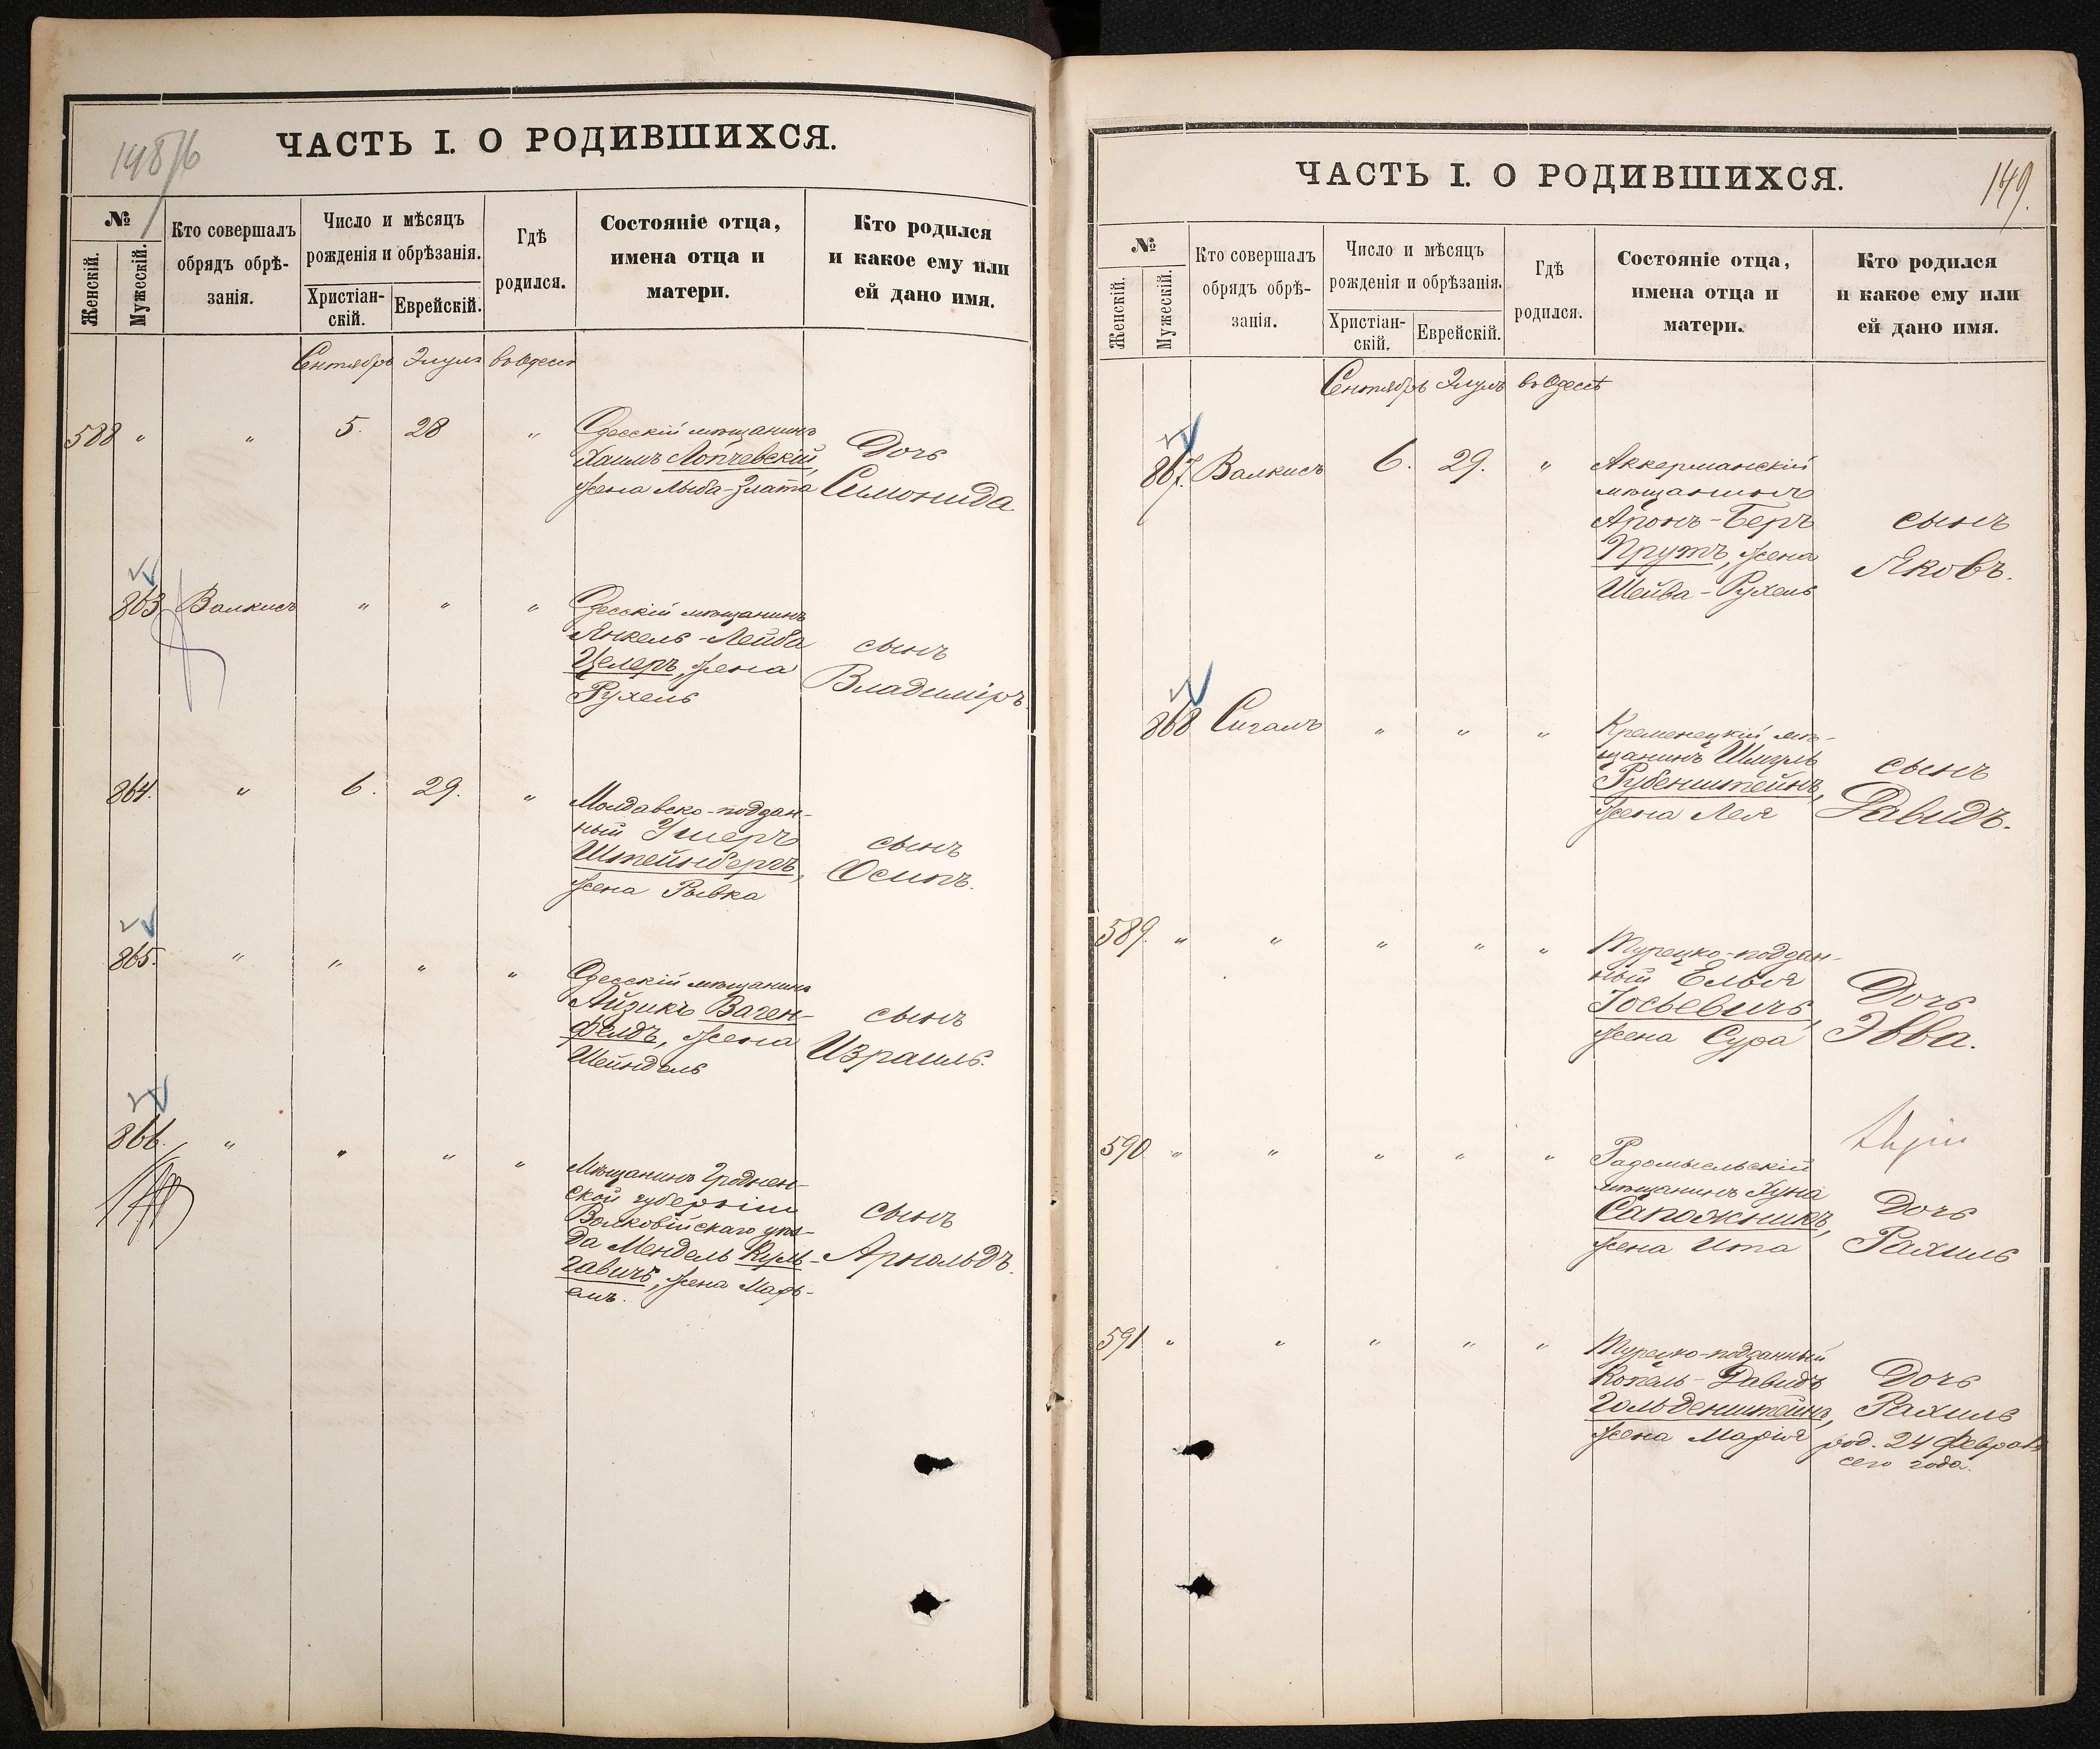 148/6
ЧАСТЬ I. О РОДИВШИХСЯ.
№
Женскій.
Мужескій.
Кто совершалъ
обрядъ обрѣ-
занія.
Число и мѣсяцъ
рожденія и обрѣзанія.
Христіан-
скій.
Еврейскій.
Гдѣ
родился.
Состояніе отца,
имена отца и
матери.
Кто родился
и какое ему или
ей дано имя.
Сентябрь Элулъ въ Одессѣ
588 " " 5. 28 "
Одесскій мѣщанинъ
Хаимъ Лопчевскій,
жена Лыба-Злата
Дочь
Симонида
863 Валкисъ " " "
Одесскій мѣщанинъ
Янкель-Лейба
Целеръ, жена
Рухель
сынъ
Владиміръ.
864. " 6. 29. "
Молдавско-поддан-
ный Ушеръ
Штейнбергъ,
жена Рывка
сынъ
Осипъ.
865. " " " "
Одесскій мѣщанинъ
Айзикъ Ваген-
фелдъ, жена
Шейндель
сынъ
Израиль.
866. " " " "
Мѣщанинъ Гроднен-
ской губерніи
Волковійскаго уѣз-
да Мендель Куль-
гавичъ, жена Марь-
емъ.
сынъ
Арнольдъ.
149.
ЧАСТЬ I. О РОДИВШИХСЯ.
№
Женскій.
Мужескій.
Кто совершалъ
обрядъ обрѣ-
занія.
Число и мѣсяцъ
рожденія и обрѣзанія.
Христіан-
скій.
Еврейскій.
Гдѣ
родился.
Состояніе отца,
имена отца и
матери.
Кто родился
и какое ему или
ей дано имя.
Сентябрь Элулъ въ Одессѣ
867. Валкисъ 6. 29. "
Аккерманскій
мѣщанинъ
Аронъ-Беръ
Прутъ, жена
Шейва-Рухель
сынъ
Яковъ.
868 Сигалъ " " "
Кременецкій мѣ-
щанинъ Шмуль
Рубенштейнъ,
жена Лея
сынъ
Давидъ.
589. " " " " "
Турецко-поддан-
ный Елья
Іосьевичъ,
жена Сура
Дочь
Эвва.
590 " " " " "
Радомысльскій
мѣщанинъ Хуна
Сапожникъ,
жена Ита
Дочь
Рахиль
591 " " " " "
Турецко-подданный
Копель-Давидъ
Гольденштейнъ,
жена Марія
Дочь
Рахиль
род. 24 февраля
сего года.